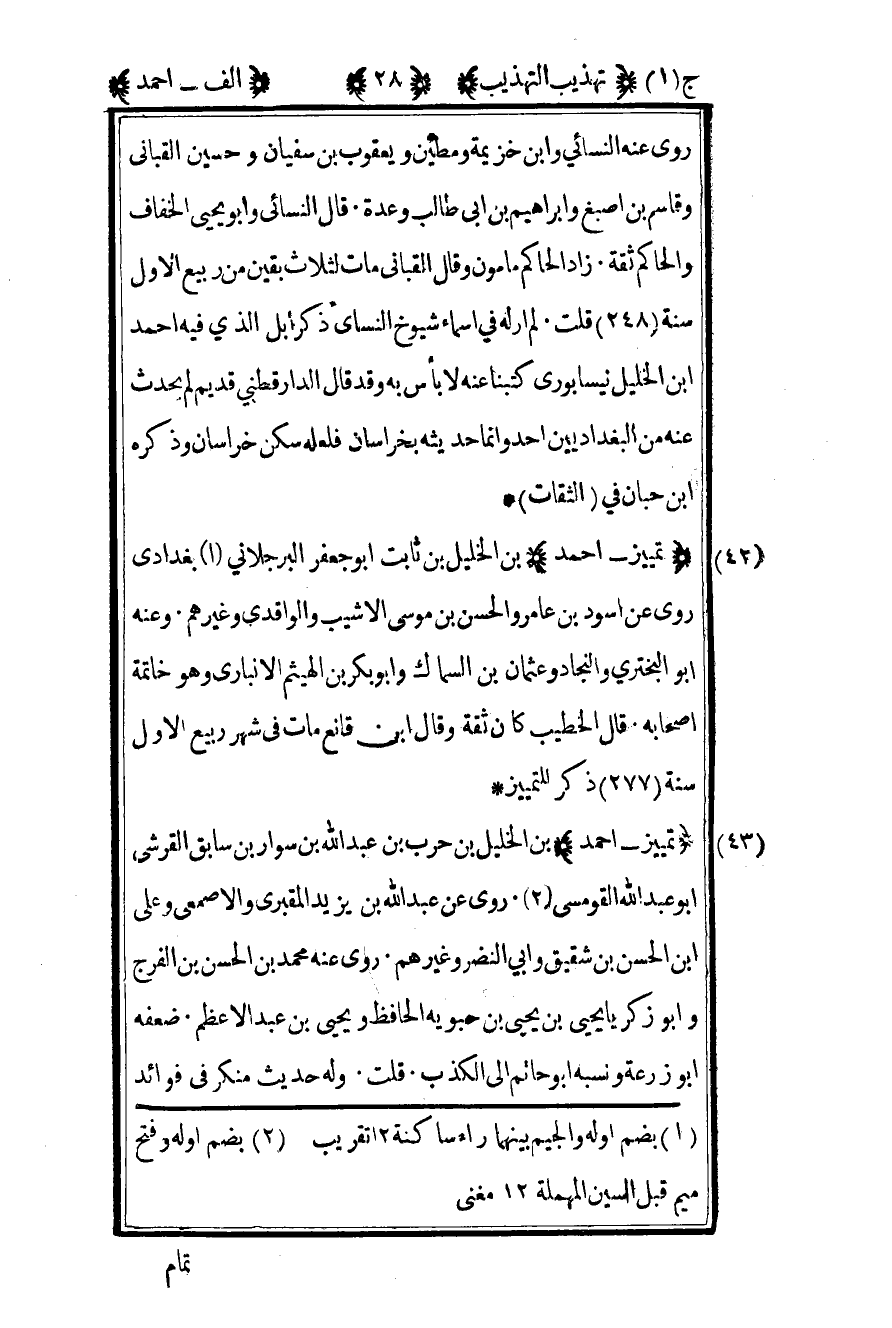 ج(١) ﴿ تهذيب التهذيب ﴾ ﴿ ٢٨ ﴾ ﴿ الف ـ احمد ﴾
روى عنه النسائي وابن خزيمة ومطين ويعقوب بن سفيان وحسين القبانى
وقاسم بن اصبغ وابراهيم بن ابى طالب وعدة ۰ قال النسائى وابو يحيى الخفاف
والحاكم ثقة ۰ زاد الحاكم مامون وقال القبانى مات لثلاث بقين من ربيع الاول
سنة (٢٤٨) قلت ۰ لم اره في اسماء شيوخ النساى ذكرا بل الذي فيه احمد
ابن الخليل نيسابورى كتبنا عنه لا بأس به وقد قال الدارقطني قديم لم يحدث
عنه من البغداديين احد وانما حديثه بخراسان فلعله سكن خراسان وذكره
ابن حبان في (الثقات)*
(٤٢) ﴿ تمييز ـ احمد ﴾ بن الخليل بن ثابت ابو جعفر البرجلاني (١) بغدادى
روى عن اسود بن عامر والحسن بن موسى الاشيب والواقدي وغيرهم ۰ وعنه
ابو البختري والنجاد وعثمان بن السماك وابو بكر بن الهيثم الانبارى وهو خاتمة
اصحابه ۰ قال الخطيب كان ثقة وقال ابن قانع مات فى شهر ربيع الاول
سنة (٢٧٧) ذكر للتمييز*
(٤٣) ﴿ تمييز ـ احمد ﴾ بن الخليل بن حرب بن عبد الله بن سوار بن سابق القرشى
ابو عبد الله القومسى (٢) ۰ روى عن عبد الله بن يزيد المقبرى والاصمعى وعلى
ابن الحسن بن شقيق وابي النضر وغيرهم ۰ روى عنه محمد بن الحسن بن الفرج
وابو زكريا يحيى بن يحيى بن حبويه الحافظ ويحيى بن عبد الاعظم ۰ ضعفه
ابو زرعة ونسبه ابو حاتم الى الكذب ۰ قلت ۰ وله حديث منكر فى فوائد
(١) بضم اوله والجيم بينهما راء ساكنة ١٢ تقريب (٢) بضم اوله وفتح
ميم قبل السين المهملة ١٢ مغنى
تمام